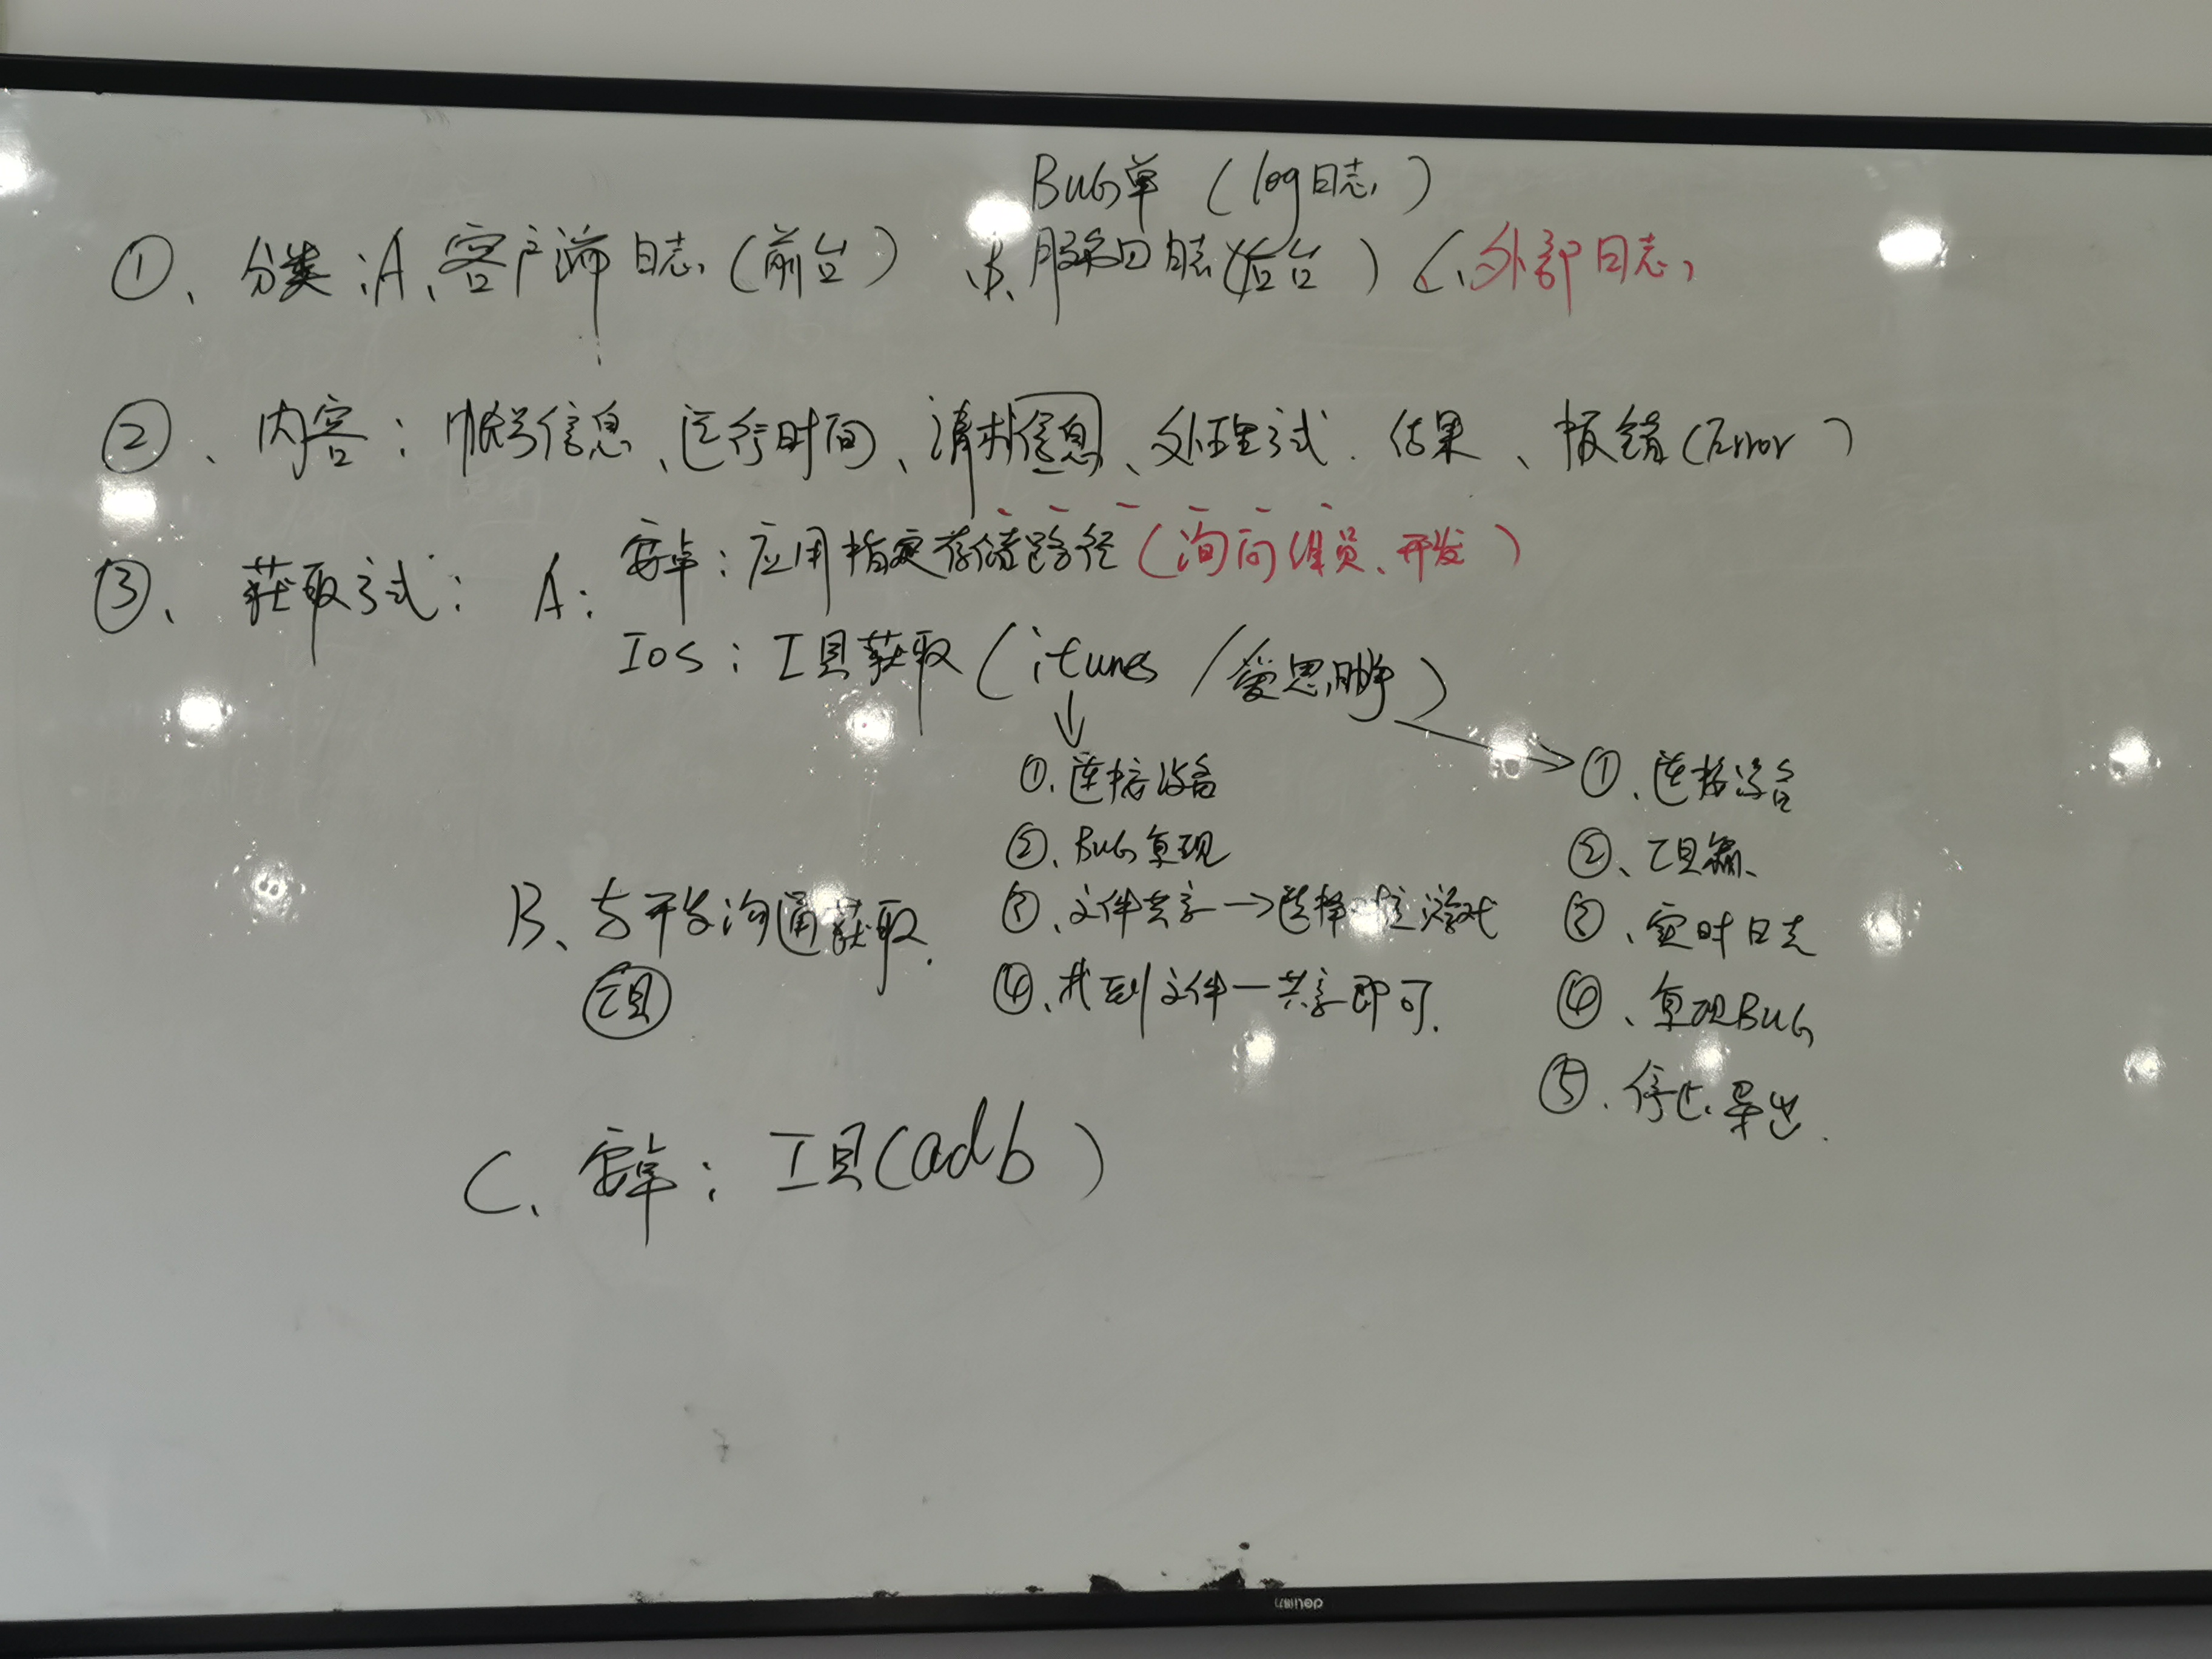 Bug单（log日志）
①、分类：A、客户端日志（前台） B、服务口日志（后台） C、外部日志
②、内容：帐号信息、运行时间、请求信息、处理方式、结果、报错（Error）
③、获取方式：A：安卓：应用指定存储路径（询问组员、开发）
IOS：工具获取（itunes/爱思助手）
①、连接设备
②、Bug复现
③、文件共享→选择 游戏
④、找到文件—共享即可.
①、连接设备
②、工具箱
③、实时日志
④、复现Bug
⑤、停止、导出.
B、与开发沟通获取.
工具
C、安卓：工具（adb）
deli得力